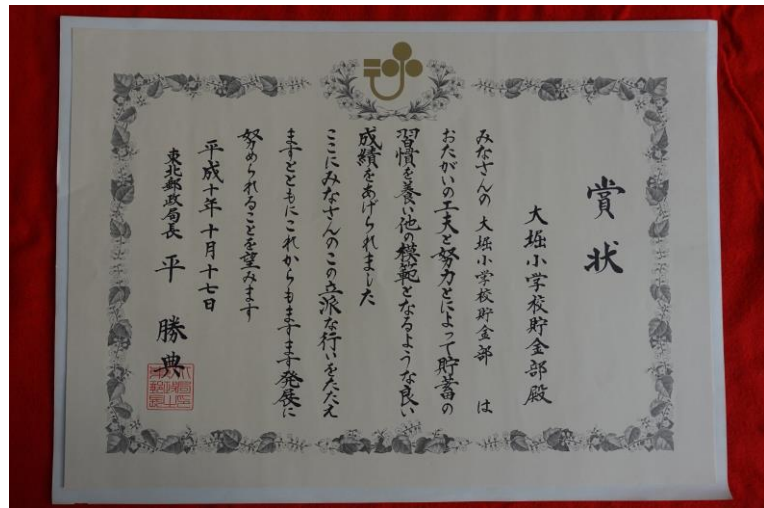 賞状
大堀小学校貯金部殿
みなさんの大堀小学校貯金部は
おたがいの工夫と努力とによって貯蓄の
習慣を養い他の模範となるような良い
成績をあげられました
ここにみなさんのこの立派な行いをたたえ
ますとともにこれからもますます発展に
努められることを望みます
平成十年十月十七日
東北郵政局長 平 勝典